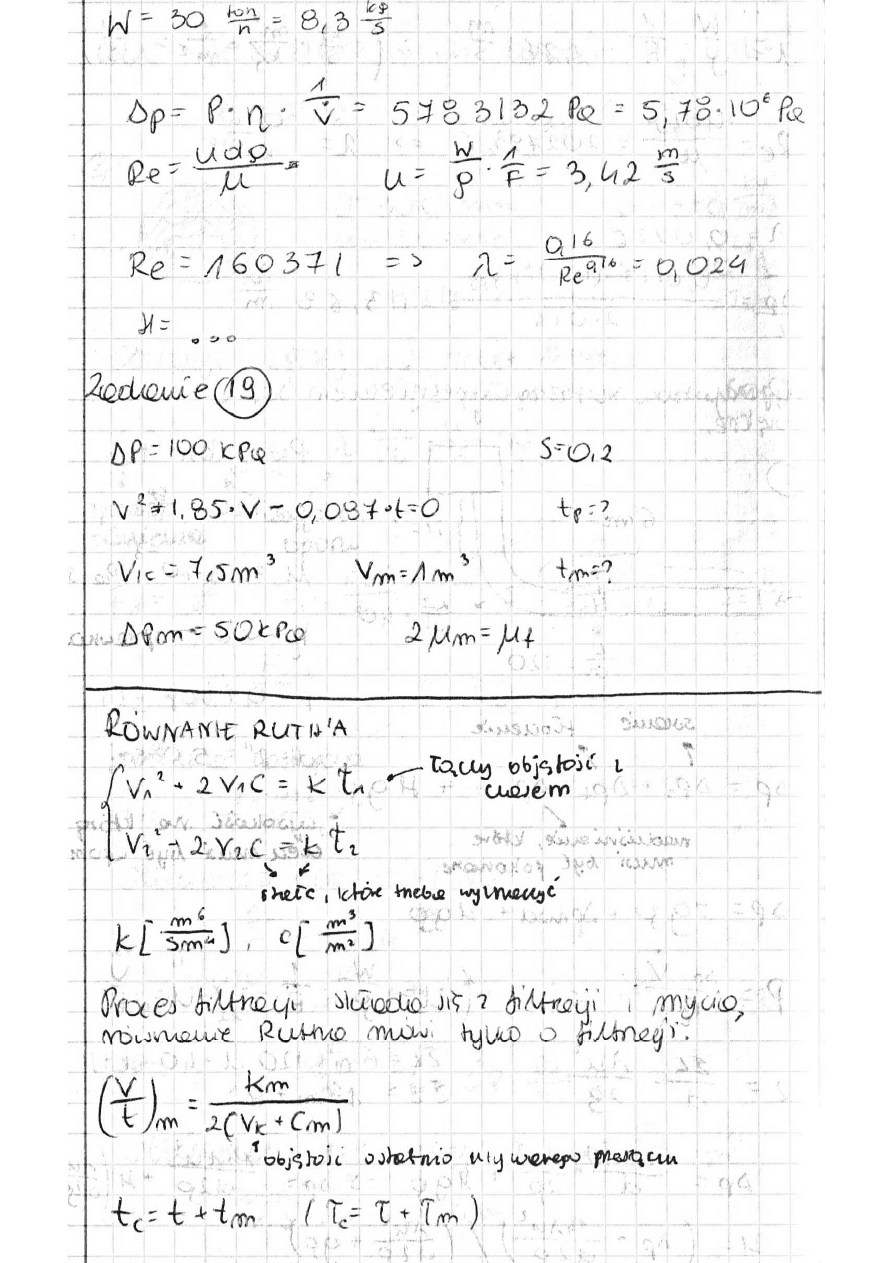 W = 30 ton/h = 8,3 kg/s
Δp = P · η · 1/V̇ = 5783132 Pa = 5,78·10⁶ Pa
Re = udρ/μ = u = W/ρ · 1/F = 3,42 m/s
Re = 160371 => λ = 0,16/Re^0,16 = 0,024
H = ...
Zadanie 19
ΔP = 100 kPa S = 0,2
V² + 1,85·V - 0,087·t = 0 tp = ?
V1c = 7,5m³ Vm = 1m³ tm = ?
ΔPm = 50kPa 2μm = μf
RÓWNANIE RUTH'A
V₁² + 2V₁C = k t₁ łączy objętość z
czasem
V₂² + 2·V₂C = k t₂
stałe, które trzeba wyznaczyć
k[m⁶/sm⁴], c[m³/m²]
Proces filtracji składa się z filtracji i mycia,
równanie Rutha mówi tylko o filtracji.
(V/t)m = km/2(Vk + Cm)
objętość ostatnio używanego przesączu
tc = t + tm (τc = τ + τm)